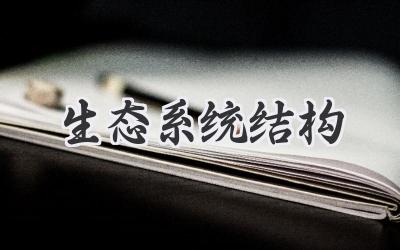 生态系统结构